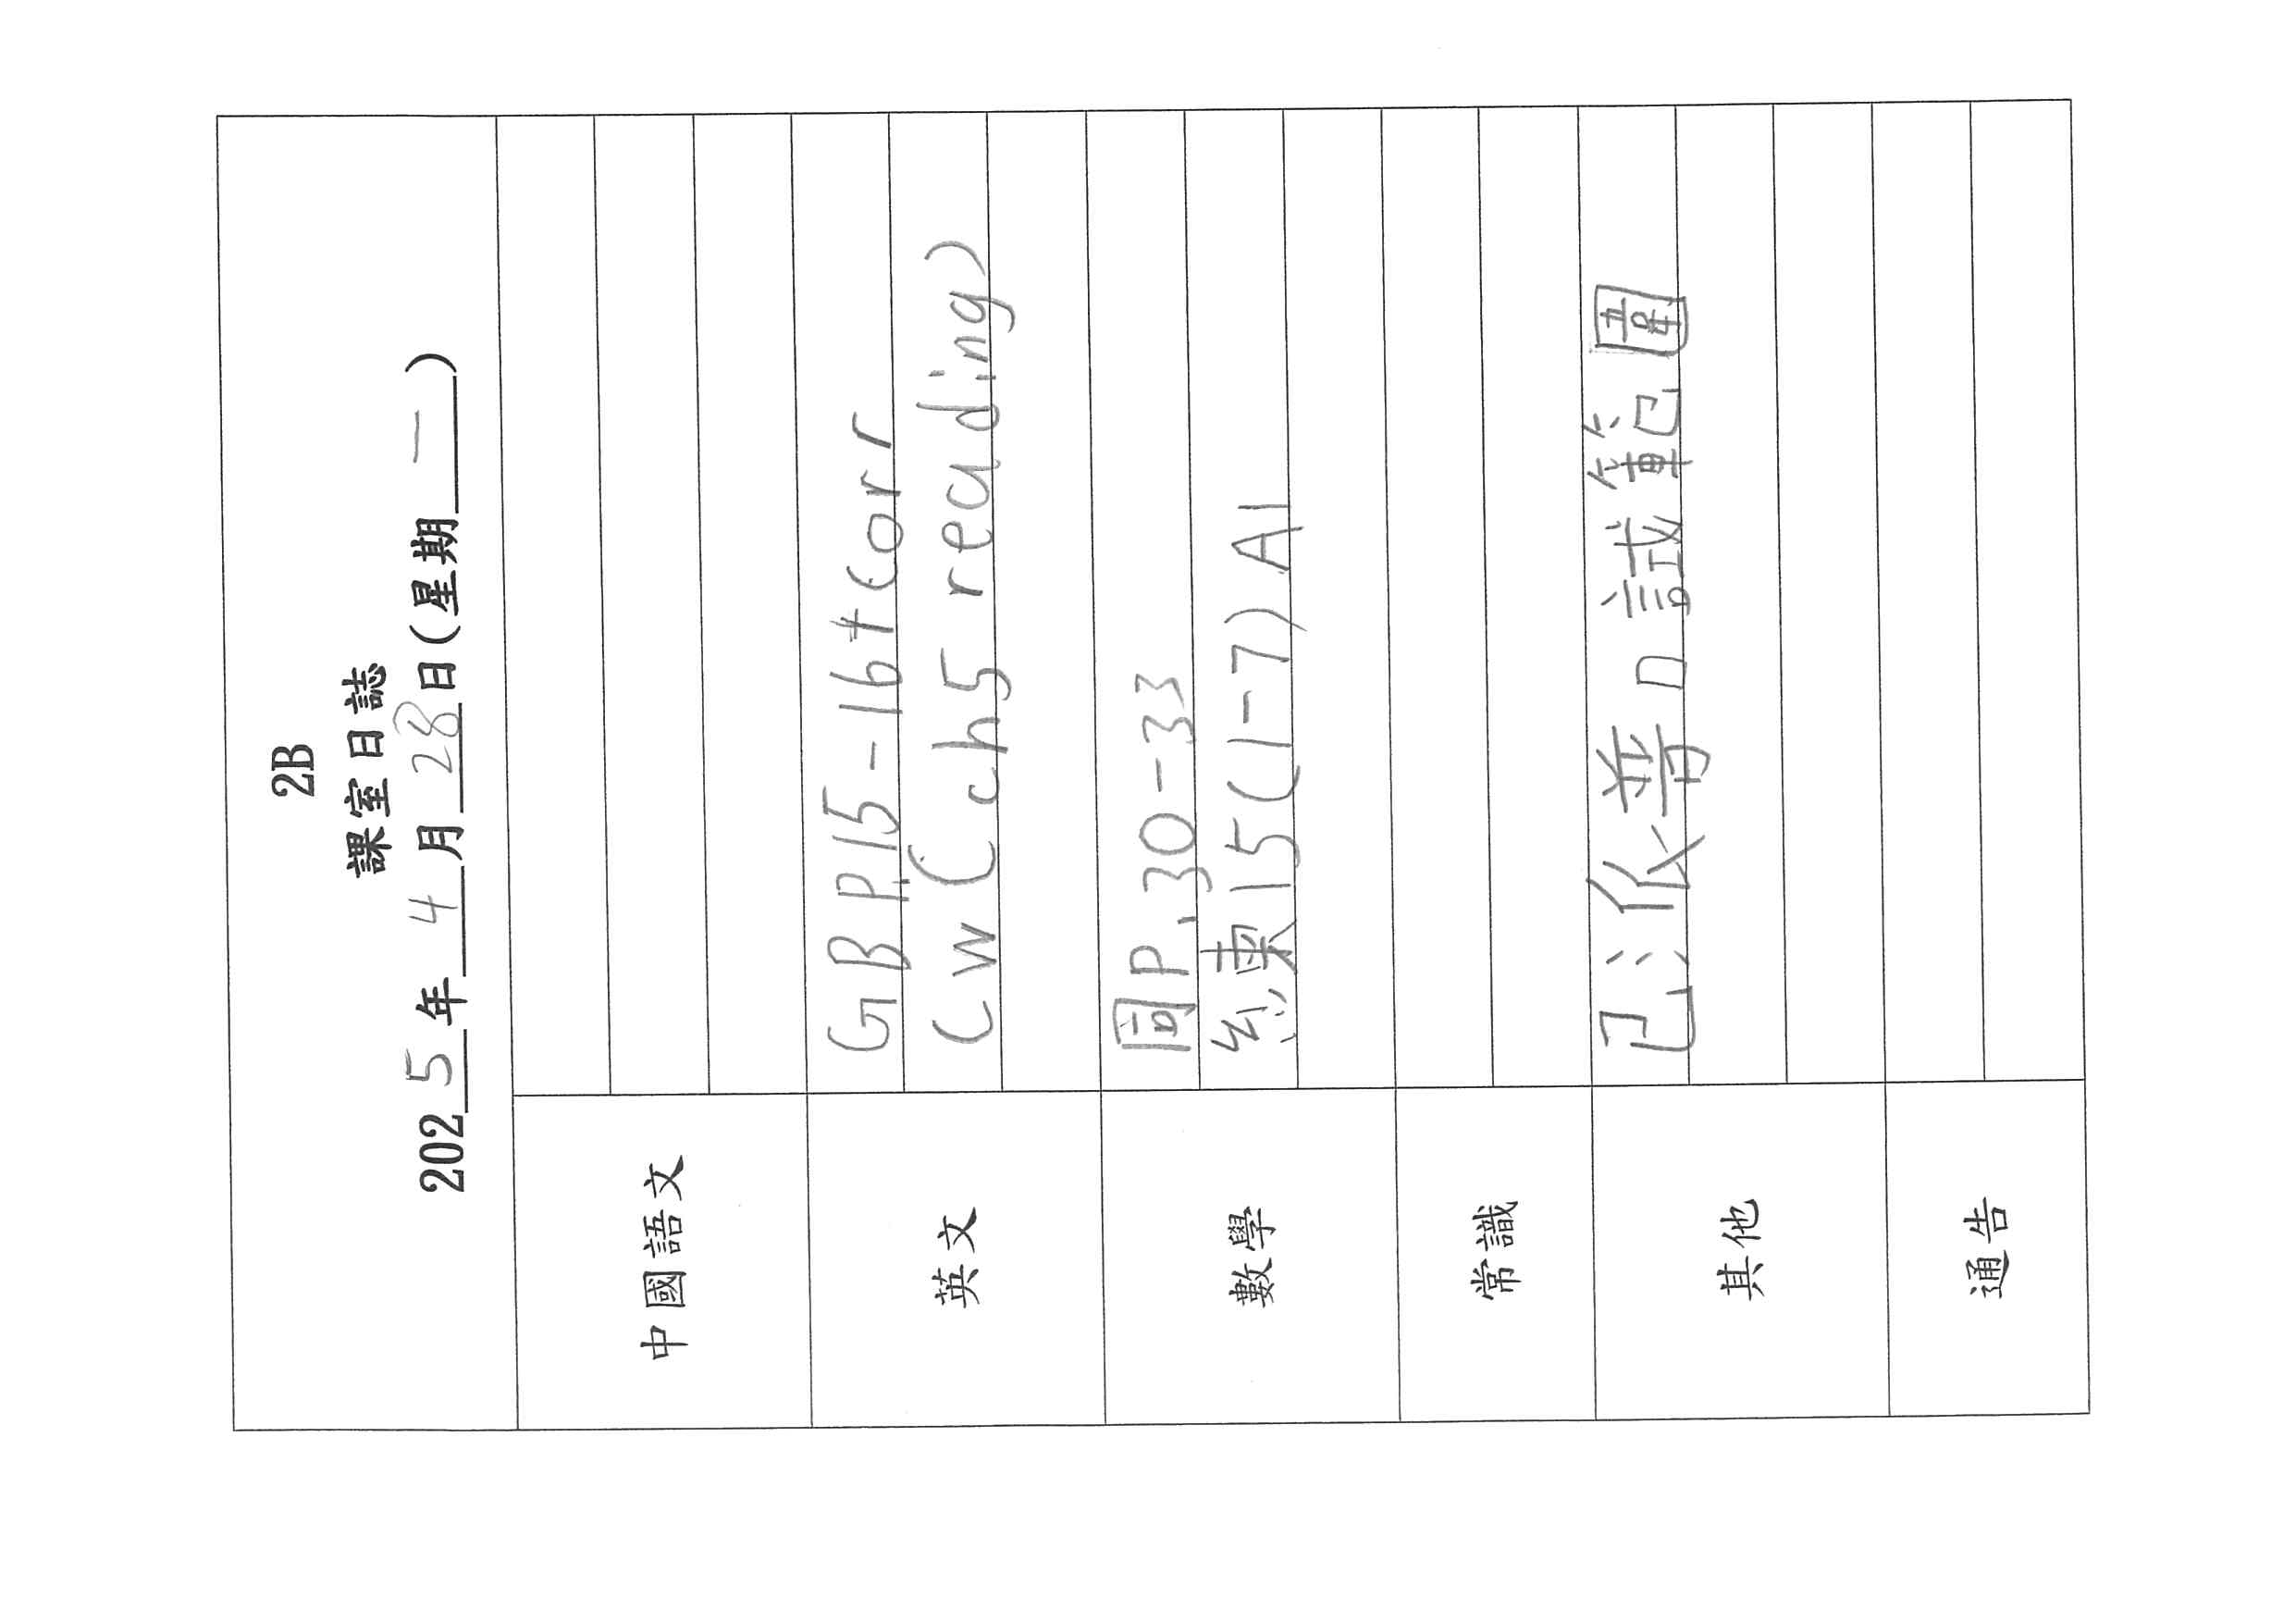 2B
課室日誌
2025年4月28日(星期一)
中國語文
英文
GB P.15-16+corr
CW (ch5 reading)
數學
P.30-33
練15(1-7)A1
常識
其他
已派普口試範圍
通告